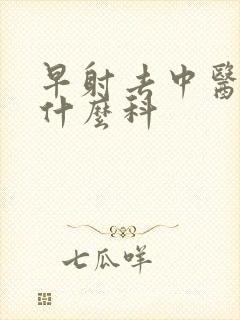 早射去中醫
什麼科
七瓜咩